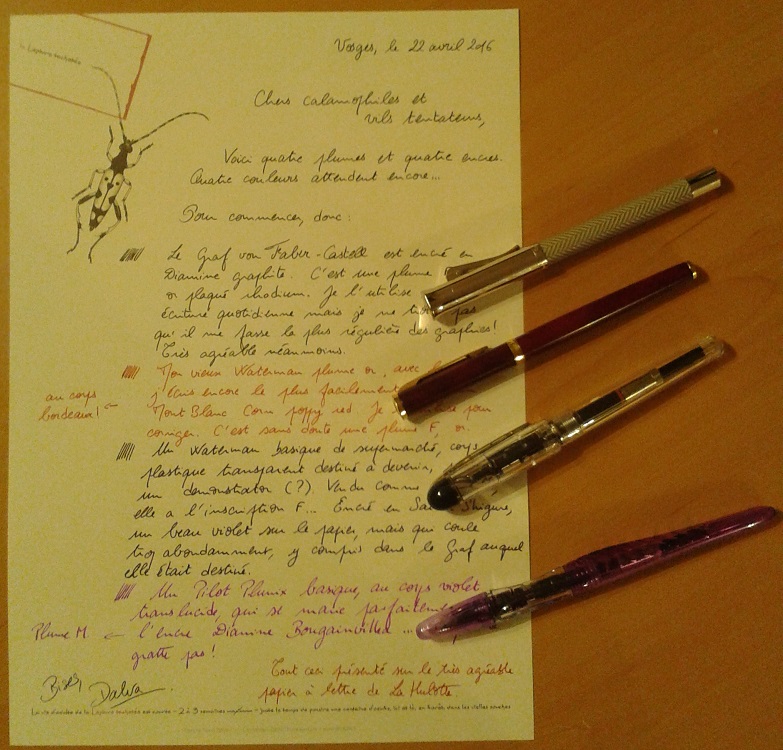 la Lepture tachetée
Vosges, le 22 avril 2016
Chers calamophiles et
vils tentateurs,
Voici quatre plumes et quatre encres.
Quatre couleurs attendent encore...
Pour commencer, donc :
Le Graf von Faber-Castell est encré en
Diamine graphite. C'est une plume
or plaqué rhodium. Je l'utilise
écriture quotidienne mais je ne pas
qu'il me fasse la plus régulière des graphies!
Très agréable néanmoins.
Mon vieux Waterman plume or, avec
j'écris encore le plus facilement
Mont Blanc Corn poppy red. Je pour
corriger. C'est sans doute une plume F, or.
au corps
bordeaux! ←
Un Waterman basique de supermarché, corps
plastique transparent destiné à devenir,
un demonstrator (?). Vendu comme
elle a l'inscription F... Encré en Shigure,
un beau violet sur le papier, mais qui coule
trop abondamment, y compris dans le Graf auquel
elle était destiné.
Un Pilot Plumix basique, au corps violet
translucide, qui se marie parfaitement
Plume M. ← l'encre Diamine Bougainvillea ...
gratte pas!
Tout ceci présenté sur le très agréable
papier à lettre de La Hulotte.
Bises,
Dalva
La vie d'adulte de la Lepture tachetée est courte - 2 à 3 semaines - juste le temps de pondre une centaine d'oeufs, ici et là, en forêt, dans les vieilles souches